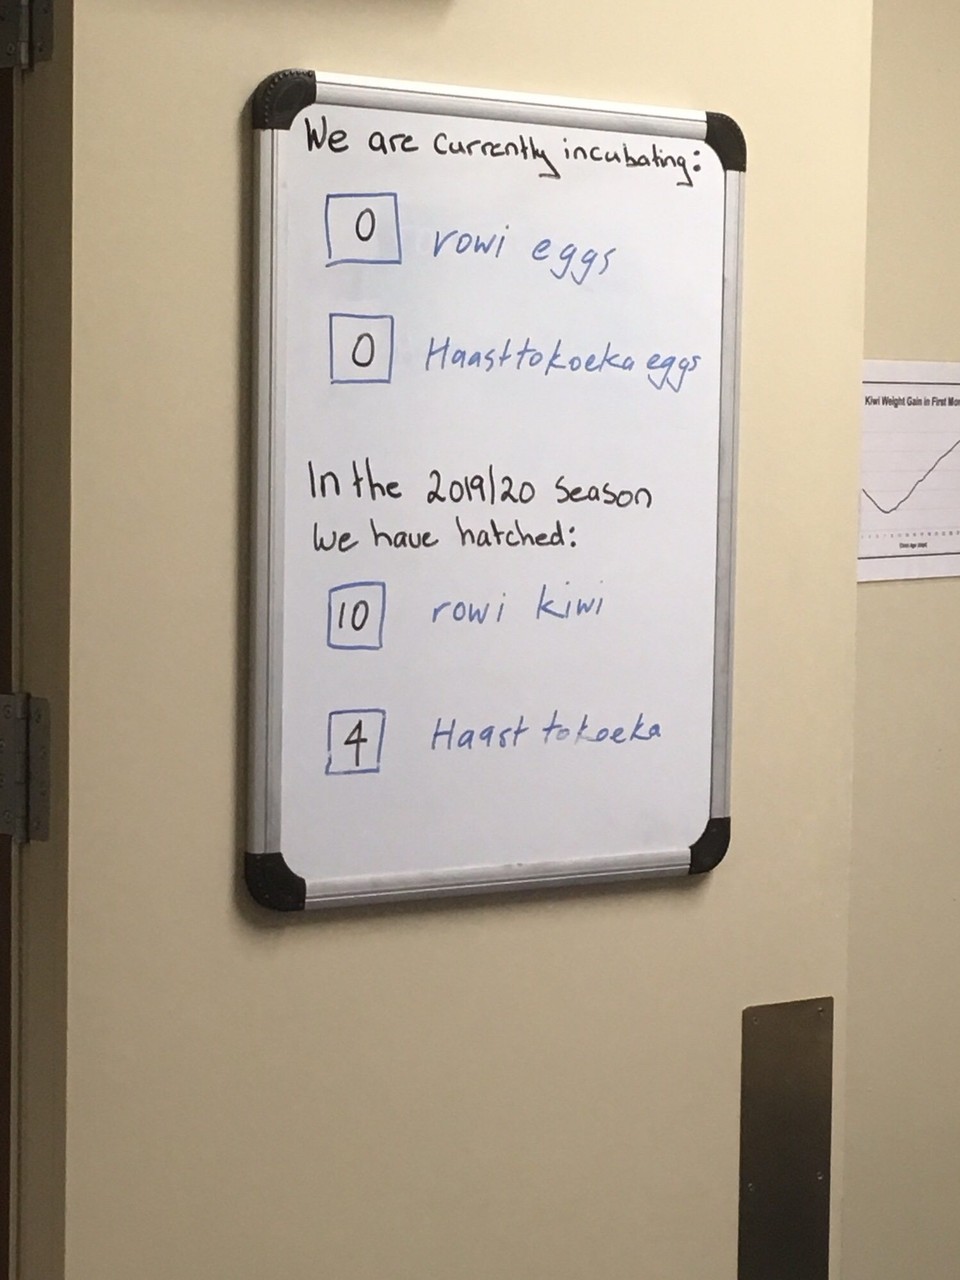 We are currently incubating:
0 rowi eggs
0 Haast tokoeka eggs
In the 2019/20 season
we have hatched:
10 rowi kiwi
4 Haast tokoeka
Kiwi Weight Gain in First